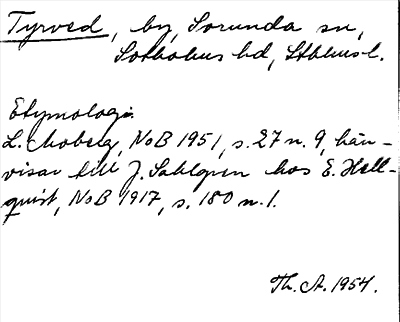 Tyrved, by, Sorunda sn,
Sotholms hd, Sthlms l.
Etymologi.
L. Moberg, NoB 1951, s. 27 n. 9, hän-
visar till J. Sahlgren hos E. Hell-
quist, NoB 1917, s. 180 n. 1.
Th. A. 1954.